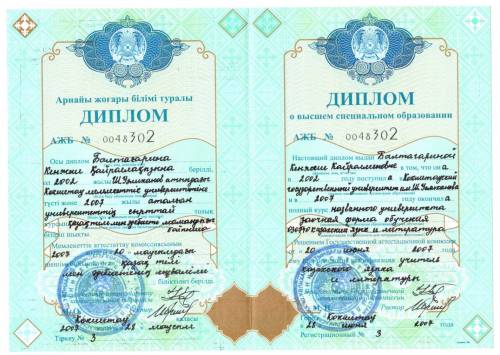 Арнайы жоғары білімі туралы
ДИПЛОМ
АЖБ № 0048302
Осы диплом Болтагарина
Кенжеш Қайралақызына берілді,
ол 2002 жылы Ш.Уәлиханов атындағы
Көкшетау мемлекеттік университетіне
түсті және 2007 жылы аталған
университеттің сырттай толық
қазақ тілі мен әдебиеті мамандығы
бойынша
шықты.
Мемлекеттік аттестаттау комиссиясының
2007 20 маусымдағы
қазақ тілі
мен әдебиетінің мұғалімі
біліктілігі берілді.
Көкшетау қаласы
2007 28 маусым
Тіркеу № 3
ДИПЛОМ
о высшем специальном образовании
АЖБ № 0048302
Настоящий диплом выдан Болтагариной
Кенжеш в том, что она
в 2002 году поступила в Кокшетауский
государственный университет им.Ш.Уалиханова
и в 2007 году окончила
полный курс названного университета
заочная форма обучения
казахский язык и литература
Решением Государственной аттестационной комиссии
от 20 июня 2007
учитель
казахского языка
и литературы
Ректор
Город Кокшетау
28 июня 2007 года
Регистрационный № 3